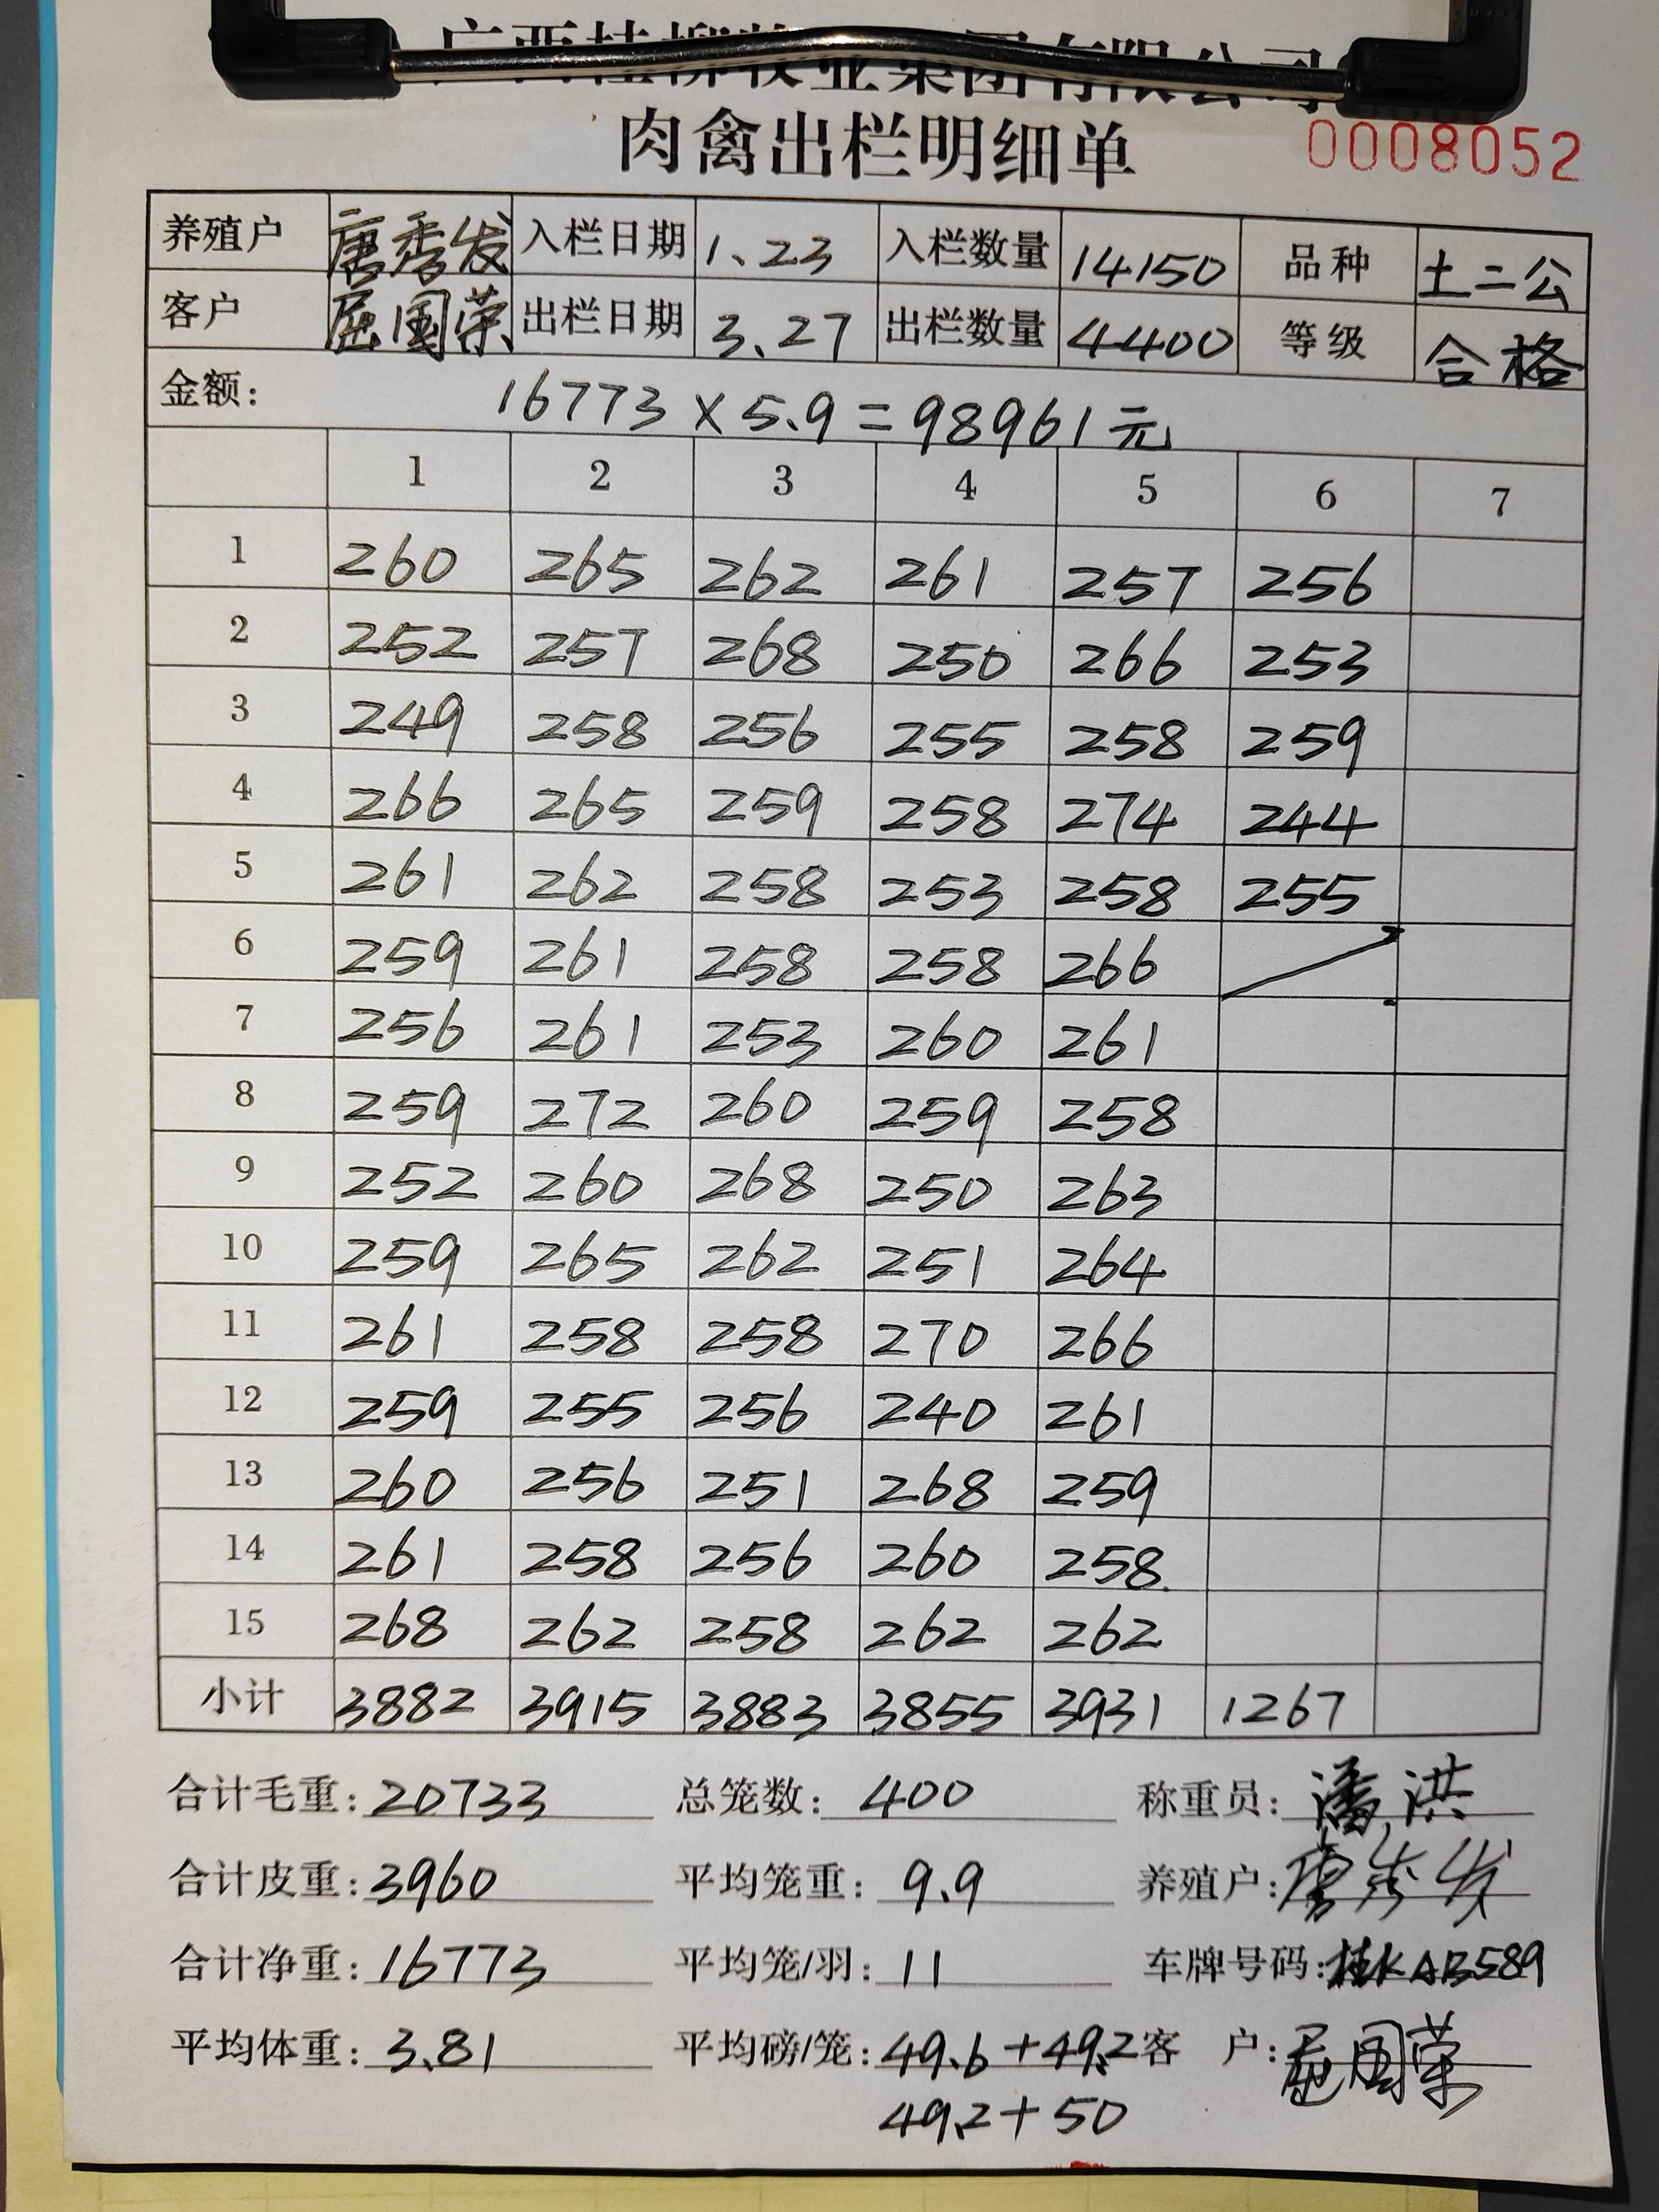 广西桂柳牧业集团有限公司
肉禽出栏明细单
0008052
养殖户 唐秀发 入栏日期 1、23 入栏数量 14150 品种 土二公
客户 屈国荣 出栏日期 3、27 出栏数量 4400 等级 合格
金额: 16773×5.9=98961元
1 2 3 4 5 6 7
1 260 265 262 261 257 256
2 252 257 268 250 266 253
3 249 258 256 255 258 259
4 266 265 259 258 274 244
5 261 262 258 253 258 255
6 259 261 258 258 266
7 256 261 253 260 261
8 259 272 260 259 258
9 252 260 268 250 263
10 259 265 262 251 264
11 261 258 258 270 266
12 259 255 256 240 261
13 260 256 251 268 259
14 261 258 256 260 258
15 268 262 258 262 262
小计 3882 3915 3883 3855 3931 1267
合计毛重: 20733 总笼数: 400 称重员: 潘洪
合计皮重: 3960 平均笼重: 9.9 养殖户: 唐秀发
合计净重: 16773 平均笼/羽: 11 车牌号码: 桂KAB589
平均体重: 3.81 平均磅/笼: 49.6+49.2 客 户: 屈国荣
49.2+50